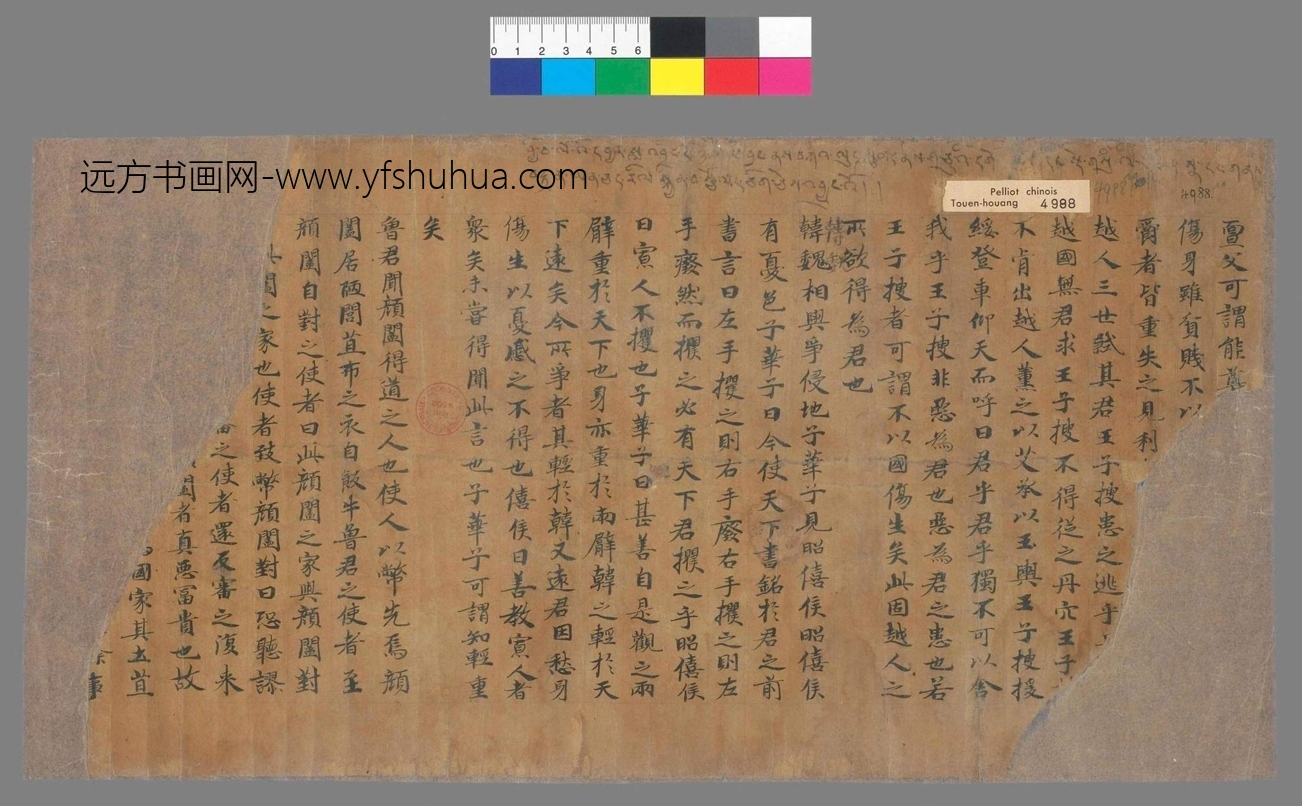 0 1 2 3 4 5 6
远方书画网-www.yfshuhua.com
Pelliot chinois
Touen-houang 4988
4988
亶父可謂能尊
傷身雖貧賤不以
爵者皆重失之見利
越人三世弑其君王子搜患之逃乎
越國無君求王子搜不得従之丹穴王子
不肯出越人薫之以艾承以玉輿王子搜援
綏登車仰天而呼曰君乎君乎獨不可以舎
我乎王子搜非惡為君也惡為君之患也若
王子搜者可謂不以國傷生矣此固越人之
所欲得為君也
韓魏相與爭侵地子華子見昭僖侯昭僖侯
有憂色子華子曰今使天下書銘於君之前
書言曰左手攫之則右手廢右手攫之則左
手癈然而攫之必有天下君攫之乎昭僖侯
曰寡人不攫也子華子曰甚善自是觀之兩
臂重於天下也身亦重於兩臂韓之輕於天
下遠矣今所爭者其輕於韓又遠君固愁身
傷生以憂慼之不得也僖侯曰善教寡人者
衆矣未嘗得聞此言也子華子可謂知輕重
矣
魯君聞顔闔得道之人也使人以幣先焉顔
闔居陋閭苴布之衣自飯牛魯君之使者至
顔闔自對之使者曰此顔闔之家與顔闔對
此闔之家也使者致幣顔闔對曰恐聽謬
之使者還反審之復来
闔者真惡富貴也故
國家其土苴
事